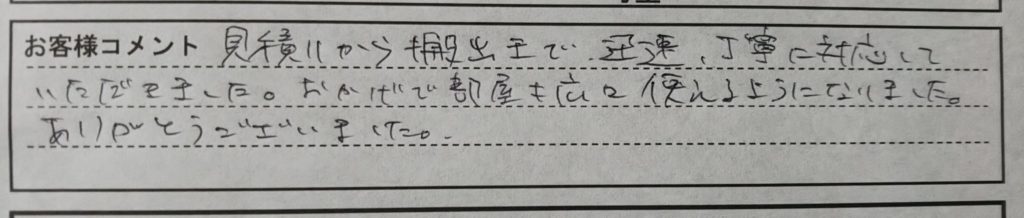 お客様コメント 見積りから搬出まで、迅速、丁寧に対応して
いただきました。おかげで部屋も広く使えるようになりました。
ありがとうございました。